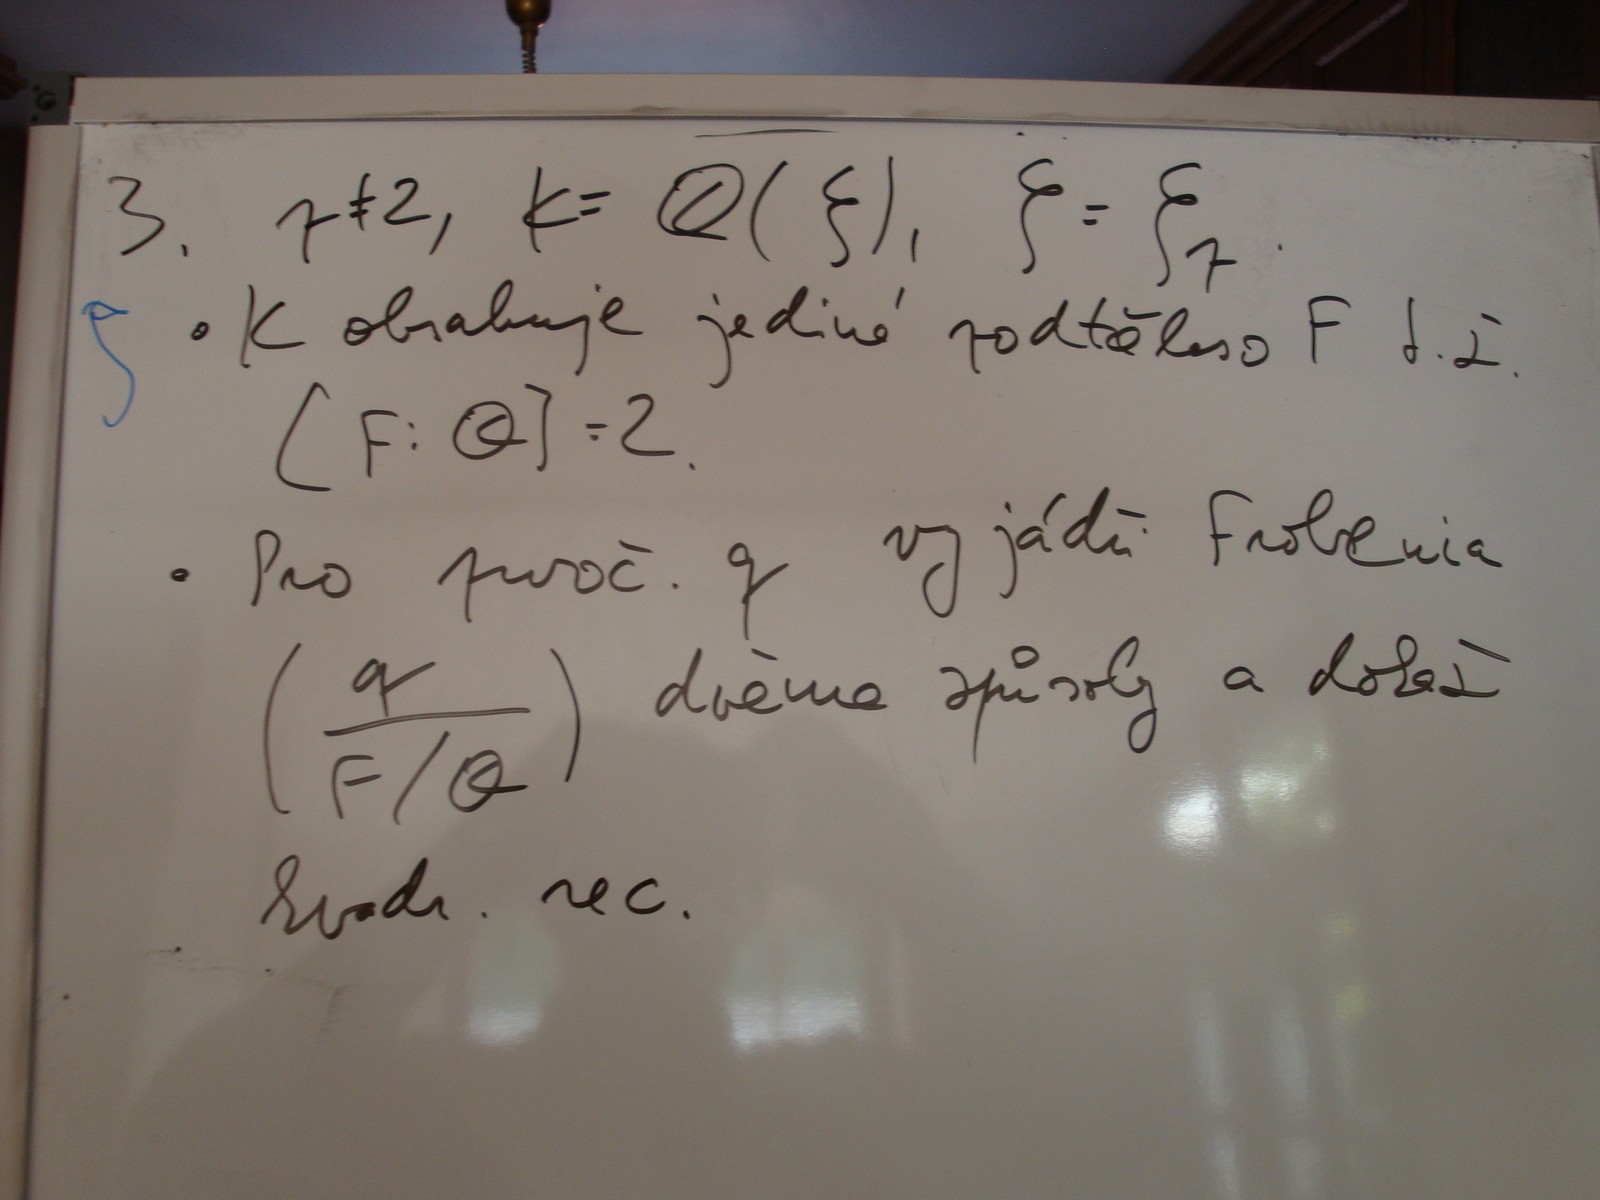 3. p≠2, K = ℚ(ξ), ξ = ξ_p.
ξ • K obsahuje jediné podtěleso F t.ž.
[F:ℚ] = 2.
• Pro prvoč. q vyjádři Frobenia
(q / F/ℚ) dvěma způsoby a dokaž
kvadr. rec.